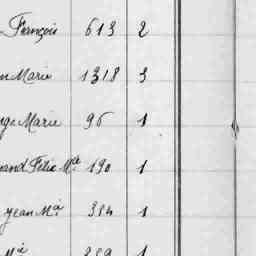 François 613 2
Marie 1318 3
Marie 96 1
Félix Mie 190 1
Jean Mie 384 1
Mie 289 1